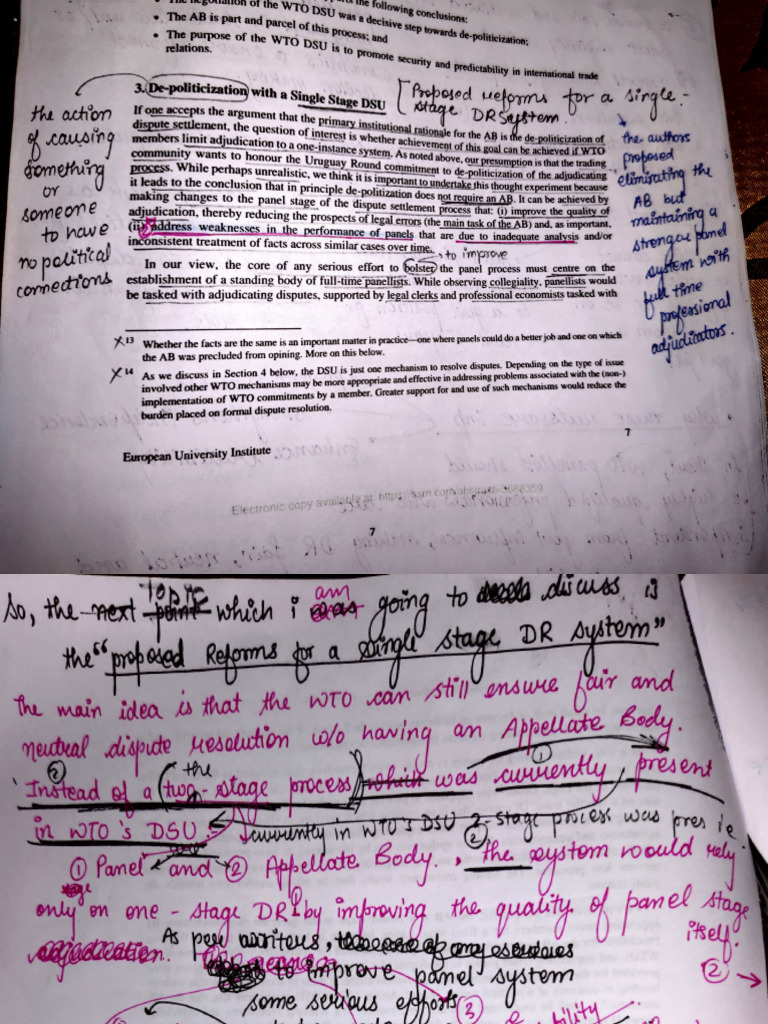 negotiation of the WTO DSU was a decisive step towards de-politicization;
the following conclusions:
• The AB is part and parcel of this process; and
• The purpose of the WTO DSU is to promote security and predictability in international trade
relations.
3. De-politicization with a Single Stage DSU
[Proposed reforms for a single-
stage DR System.
If one accepts the argument that the primary institutional rationale for the AB is the de-politicization of
dispute settlement, the question of interest is whether achievement of this goal can be achieved if WTO
members limit adjudication to a one-instance system. As noted above, our presumption is that the trading
community wants to honour the Uruguay Round commitment to de-politicization of the adjudicating
process. While perhaps unrealistic, we think it is important to undertake this thought experiment because
it leads to the conclusion that in principle de-politization does not require an AB. It can be achieved by
making changes to the panel stage of the dispute settlement process that: (i) improve the quality of
adjudication, thereby reducing the prospects of legal errors (the main task of the AB) and, as important,
(ii) address weaknesses in the performance of panels that are due to inadequate analysis and/or
inconsistent treatment of facts across similar cases over time.
the action
of causing
something
or
someone
to have
no political
connections
the authors
proposed
eliminating the
AB but
maintaining a
stronger panel
system with
full time
professional
adjudicators.
to improve
In our view, the core of any serious effort to bolster the panel process must centre on the
establishment of a standing body of full-time panellists. While observing collegiality, panellists would
be tasked with adjudicating disputes, supported by legal clerks and professional economists tasked with
13 Whether the facts are the same is an important matter in practice—one where panels could do a better job and one on which
the AB was precluded from opining. More on this below.
14 As we discuss in Section 4 below, the DSU is just one mechanism to resolve disputes. Depending on the type of issue
involved other WTO mechanisms may be more appropriate and effective in addressing problems associated with the (non-)
implementation of WTO commitments by a member. Greater support for and use of such mechanisms would reduce the
burden placed on formal dispute resolution.
7
European University Institute
Electronic copy available at: https://ssrn.com/abstract=3688359
7
So, the next point topic which i am going to discuss is
the "proposed Reforms for a single stage DR system"
The main idea is that the WTO can still ensure fair and
neutral dispute resolution w/o having an Appellate Body.
② ①
Instead of a (the two-stage process) which was currently present
in WTO's DSU. currently in WTO's DSU 2-stage process was pres ie.
① Panel and ② Appellate Body., ② the system would rely
only on one-stage DR by improving the quality of panel stage
itself.
adjudication. As per writers,
to improve panel system
② →
some serious efforts
③